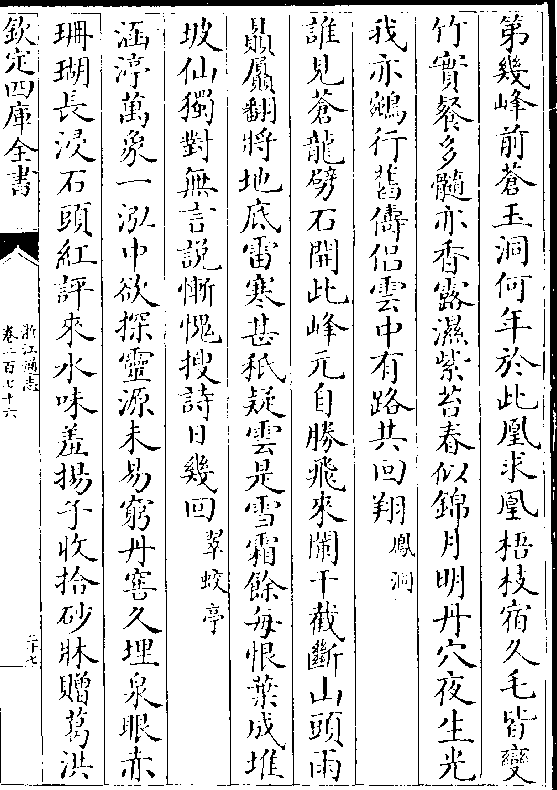 第幾峰前蒼玉洞何年於此鳳求凰梧枝宿久毛皆變
竹實餐多髓亦香露濕紫苔春似錦月明丹穴夜生光
我亦鵷行舊儔侣雲中有路共回翔鳳洞
誰見蒼龍劈石開此峰元自勝飛來闌干截斷山頭雨
贔屭翻將地底雷寒甚秪疑雲是雪霜餘每恨葉成堆
坡仙獨對無言説慚愧搜詩日幾回翠蛟亭
涵渟萬象一泓中欲探靈源未易窮丹竈久埋泉眼赤
珊瑚長浸石頭紅評來水味羞揚子收拾砂牀贈葛洪
欽定四庫全書
浙江通志
卷二百七十六
二十七